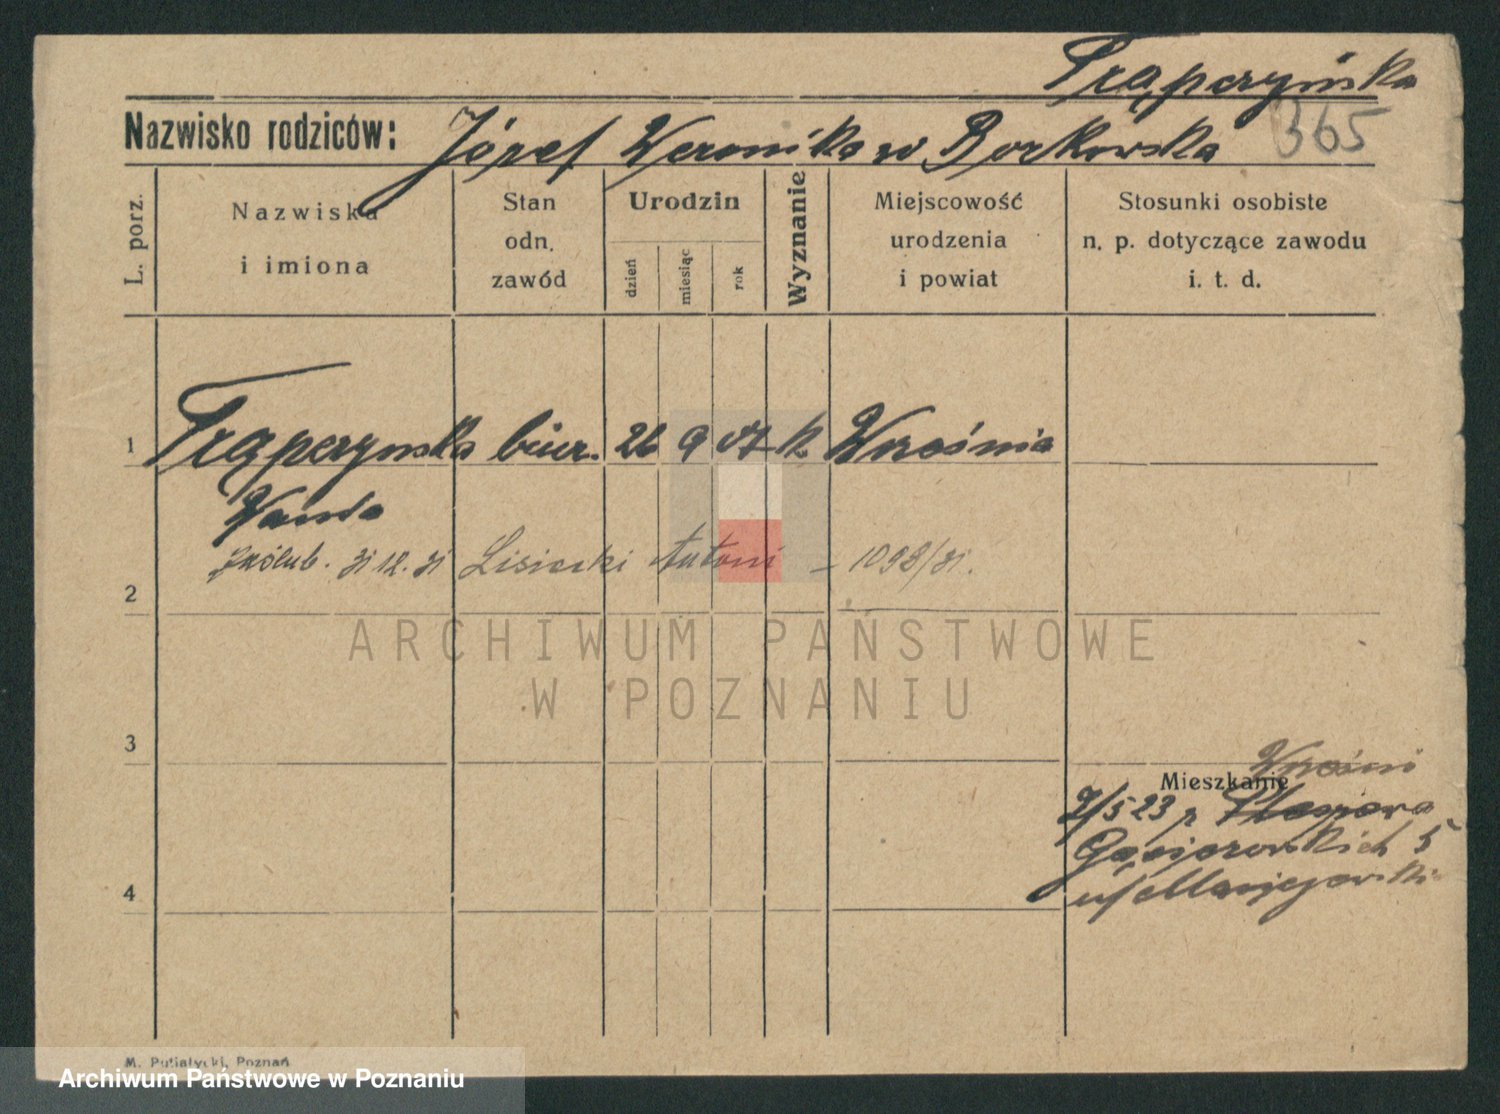 Trąpczyńska
365
Nazwisko rodziców: Józef Weronika w Borkowska
L. porz.
Nazwiska
i imiona
Stan
odn.
zawód
Urodzin
dzień
miesiąc
rok
Wyznanie
Miejscowość
urodzenia
i powiat
Stosunki osobiste
n. p. dotyczące zawodu
i. t. d.
1 Trąpczynska biur. 26 9 07 k Września
Wanda
zaślub. 31 12. 31 Lisiecki Antoni – 1098/31.
2
ARCHIWUM PAŃSTWOWE
W POZNANIU
3
Mieszkanie
Wrześni
2/5 23 p
5
u/ Maciejewski
4
M. Putiatycki, Poznań
Archiwum Państwowe w Poznaniu